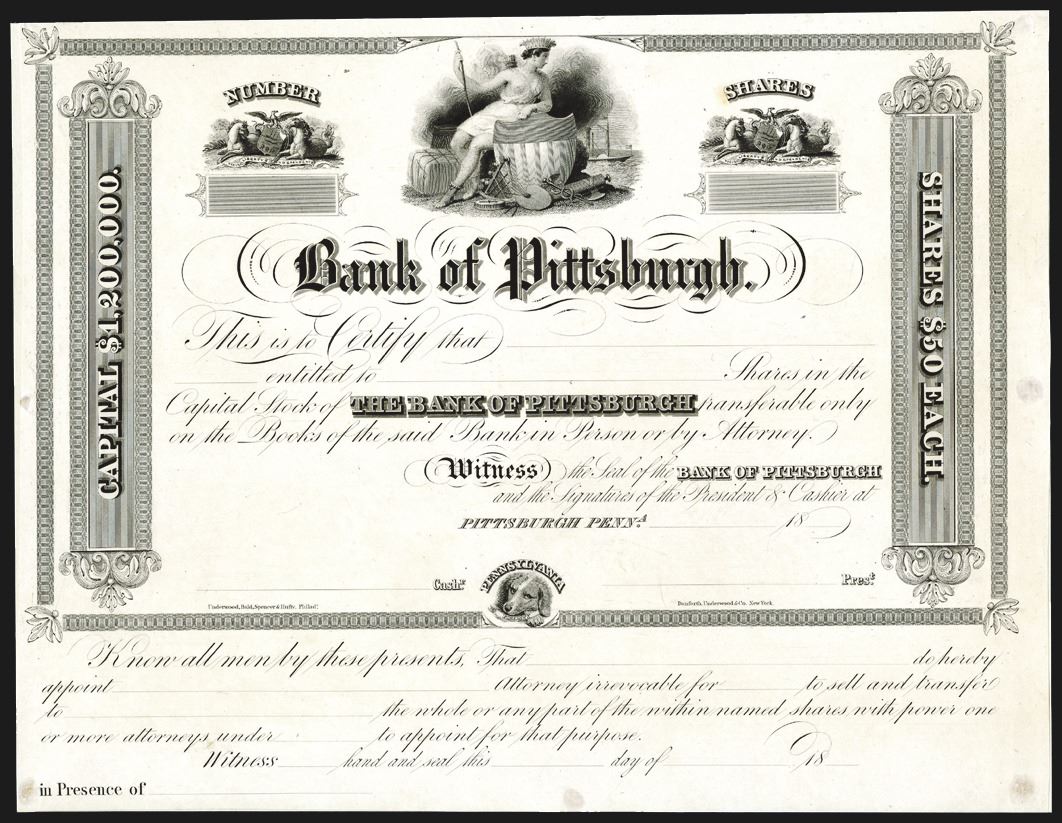 NUMBER
SHARES
CAPITAL $1,200,000.
SHARES $50 EACH.
Bank of Pittsburgh.
This is to Certify that
entitled to Shares in the
Capital Stock of THE BANK OF PITTSBURGH transferable only
on the Books of the said Bank in Person or by Attorney.
Witness the Seal of the BANK OF PITTSBURGH
and the Signatures of the President & Cashier at
PITTSBURGH PENNA. 18
Cashr. PENNSYLVANIA Prest.
Underwood, Bald, Spencer & Hufty. Philada. Danforth, Underwood & Co. New York
Know all men by these presents, That do hereby
appoint Attorney irrevocable for to sell and transfer
to the whole or any part of the within named shares with power one
or more attorneys under to appoint for that purpose.
Witness hand and seal this day of 18
in Presence of